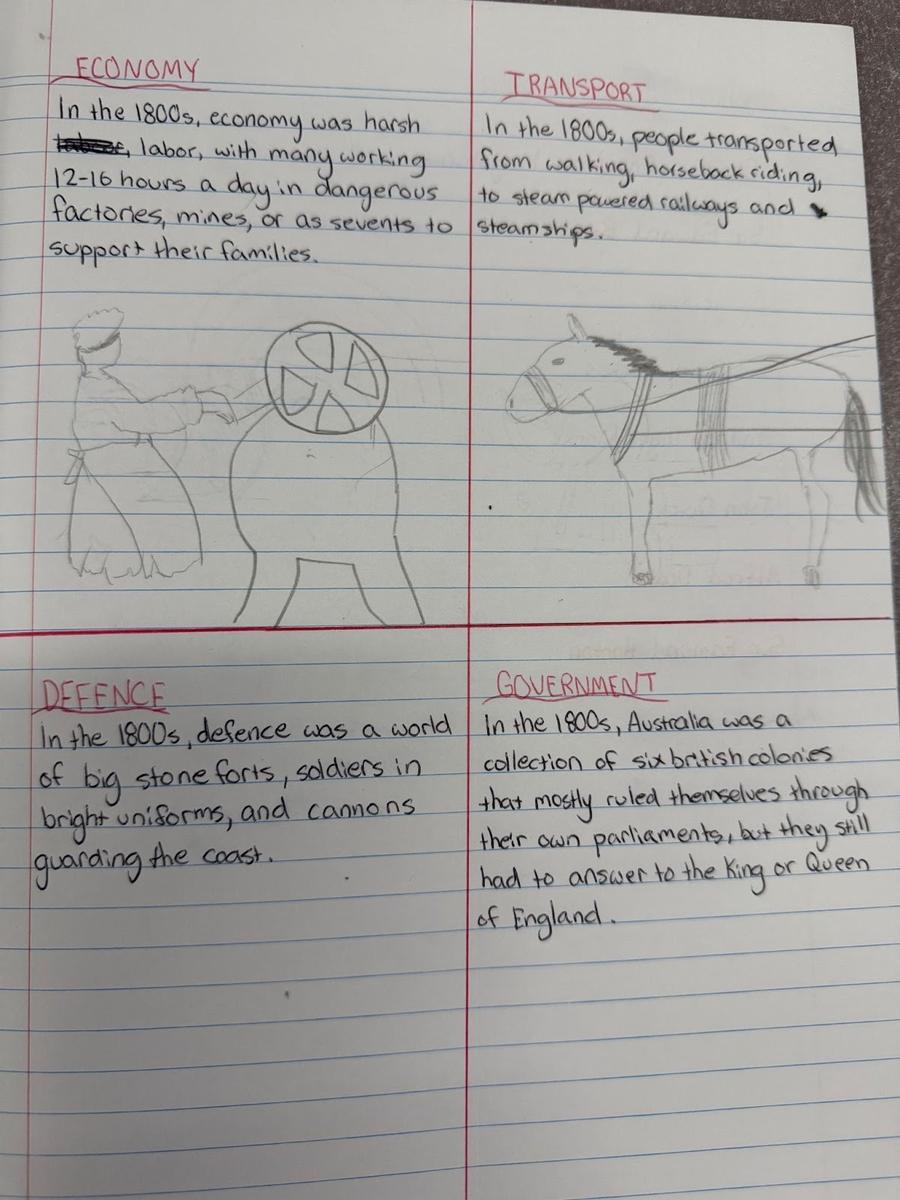 ECONOMY
In the 1800s, economy was harsh
, labor, with many working
12-16 hours a day in dangerous
factories, mines, or as sevents to
support their families.
TRANSPORT
In the 1800s, people transported
from walking, horseback riding,
to steam powered railways and
steamships.
DEFENCE
In the 1800s, defence was a world
of big stone forts, soldiers in
bright uniforms, and cannons
guarding the coast.
GOVERNMENT
In the 1800s, Australia was a
collection of six british colonies
that mostly ruled themselves through
their own parliaments, but they still
had to answer to the King or Queen
of England.